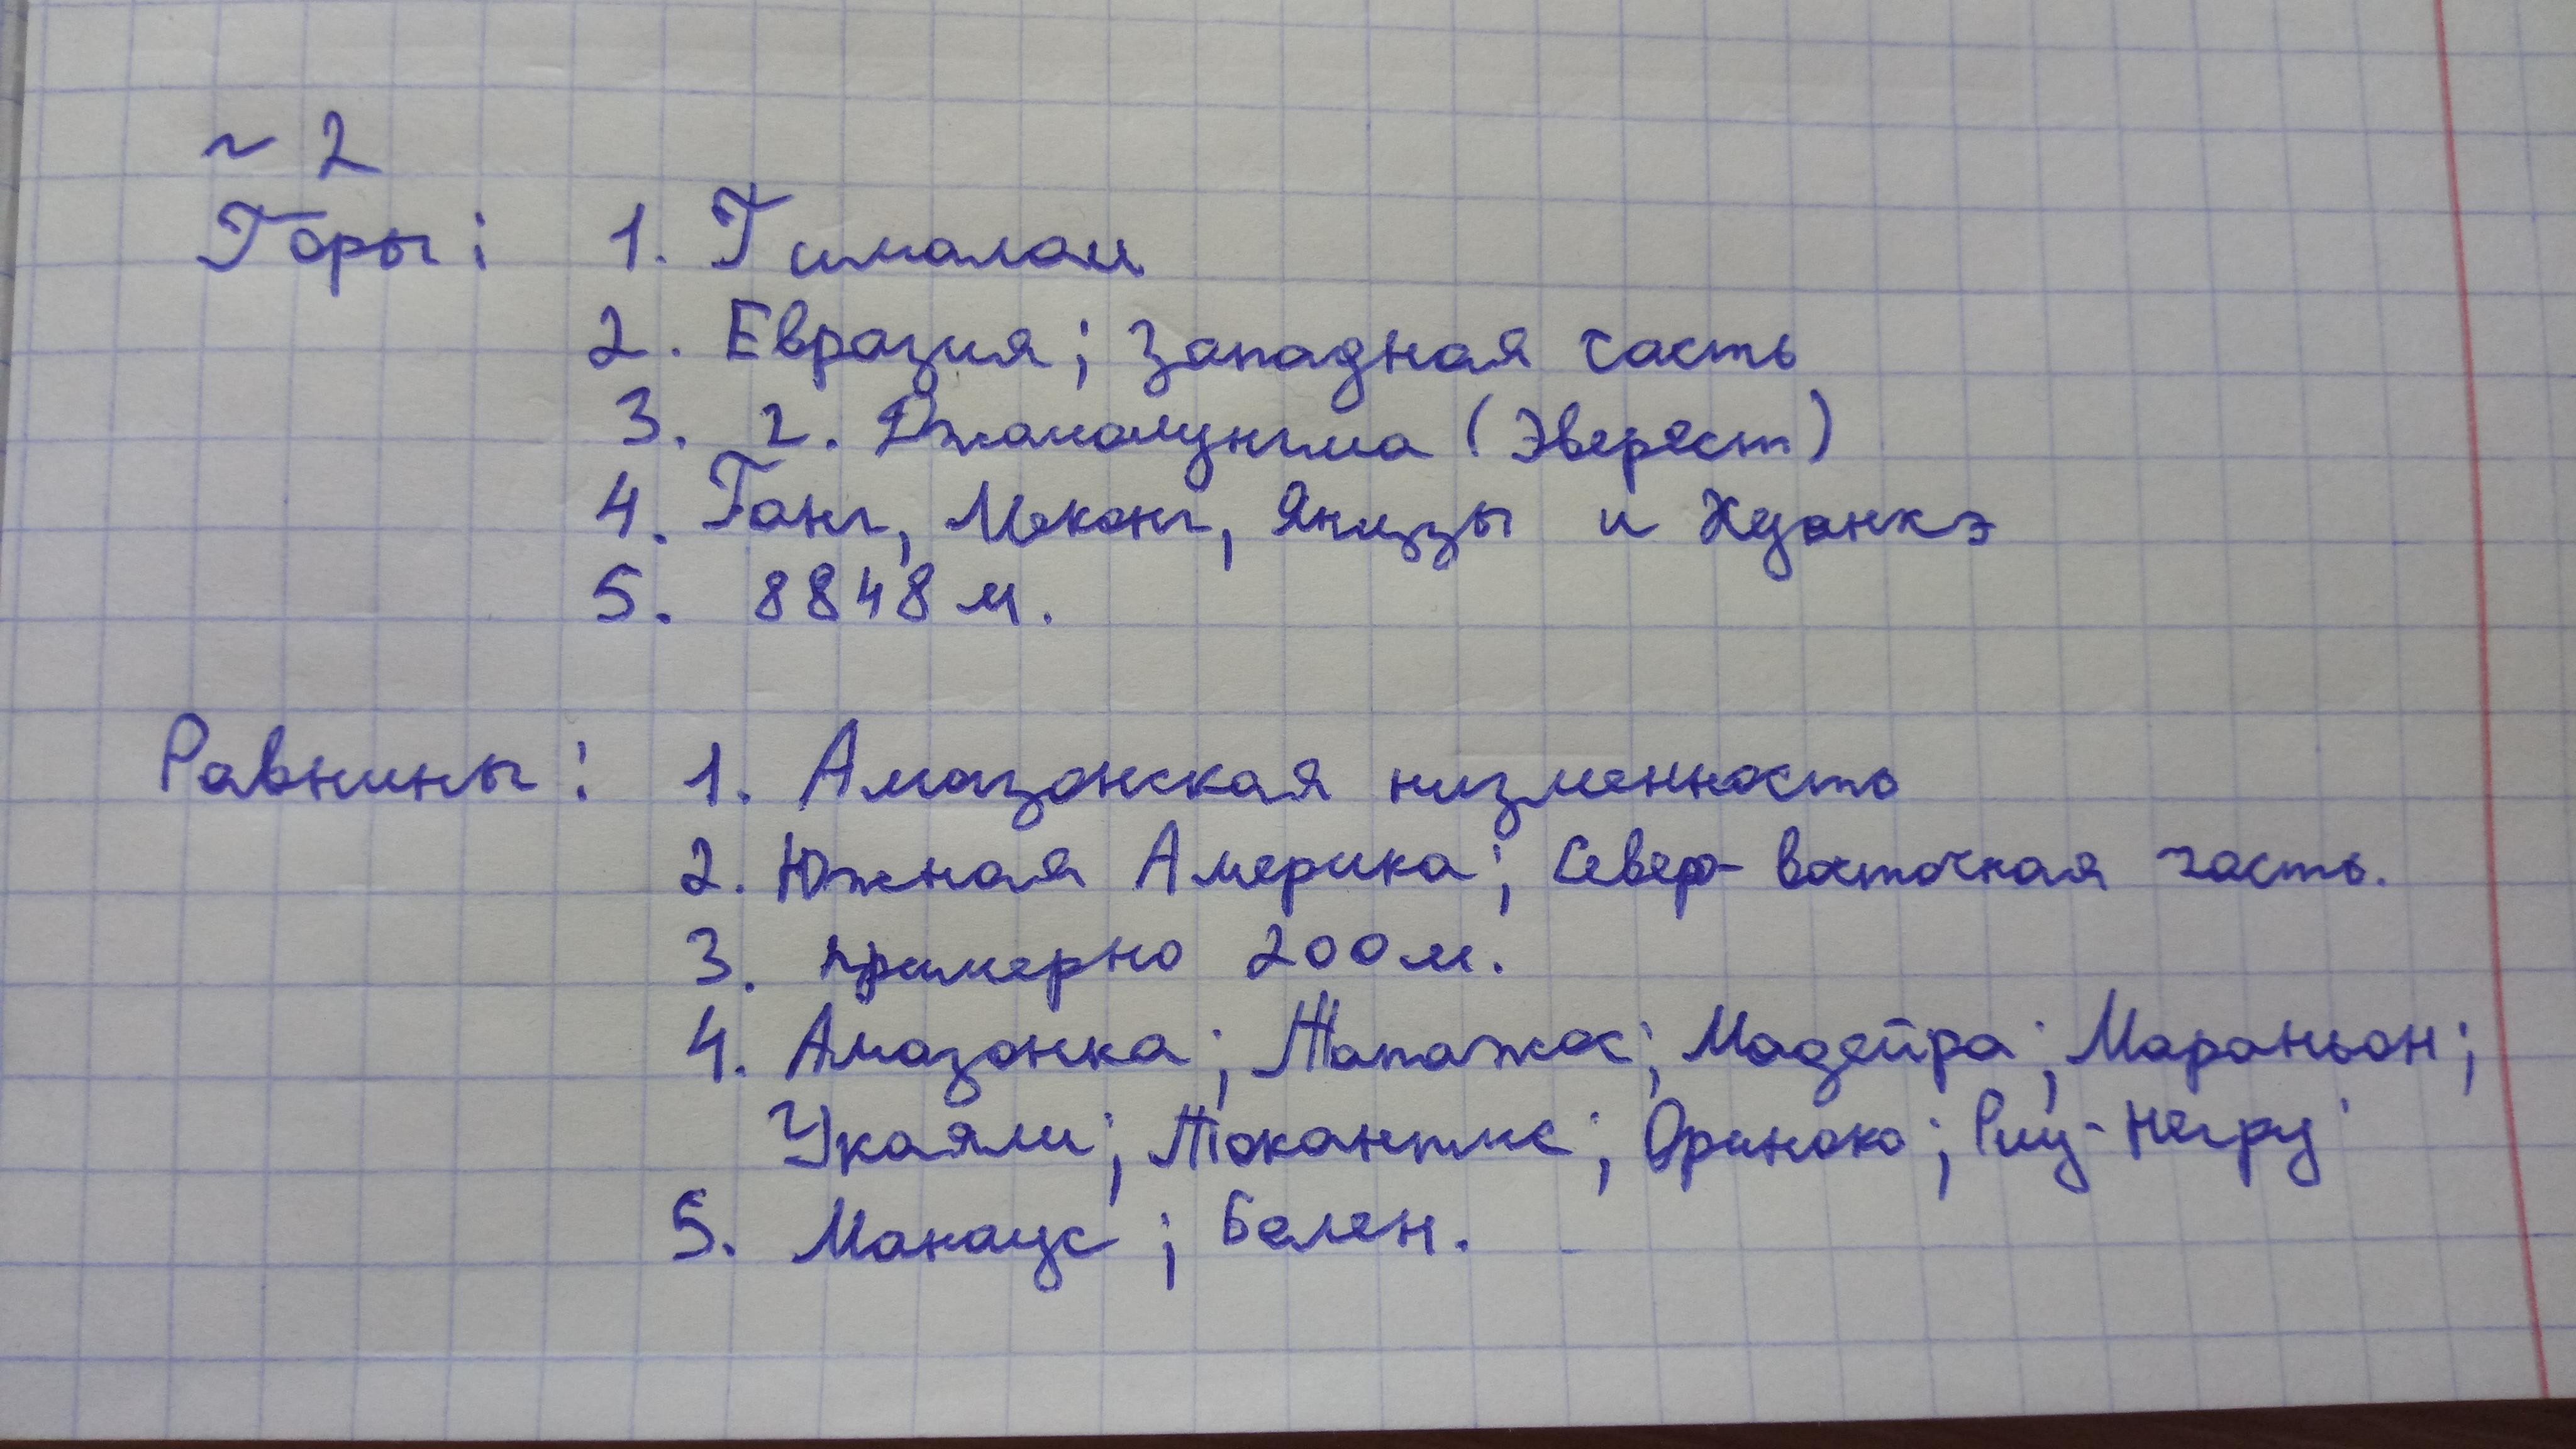 ~ 2
Горы: 1. Гималаи
2. Евразия; Западная часть
3. г. Джомолунгма (Эверест)
4. Ганг, Меконг, Янцзы и Хуанхэ
5. 8848 м.
Равнины: 1. Амазонская низменность
2. Южная Америка; Северо-восточная часть.
3. примерно 200 м.
4. Амазонка; Тапажос; Мадейра; Мараньон;
Укаяли; Токантис; Ориноко; Риу-Негру
5. Манаус; Белен.